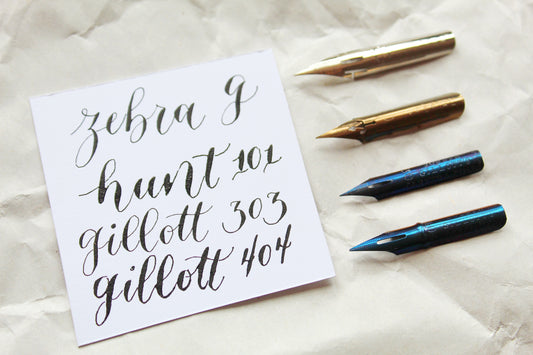 zebra g
hunt 101
gillott 303
gillott 404